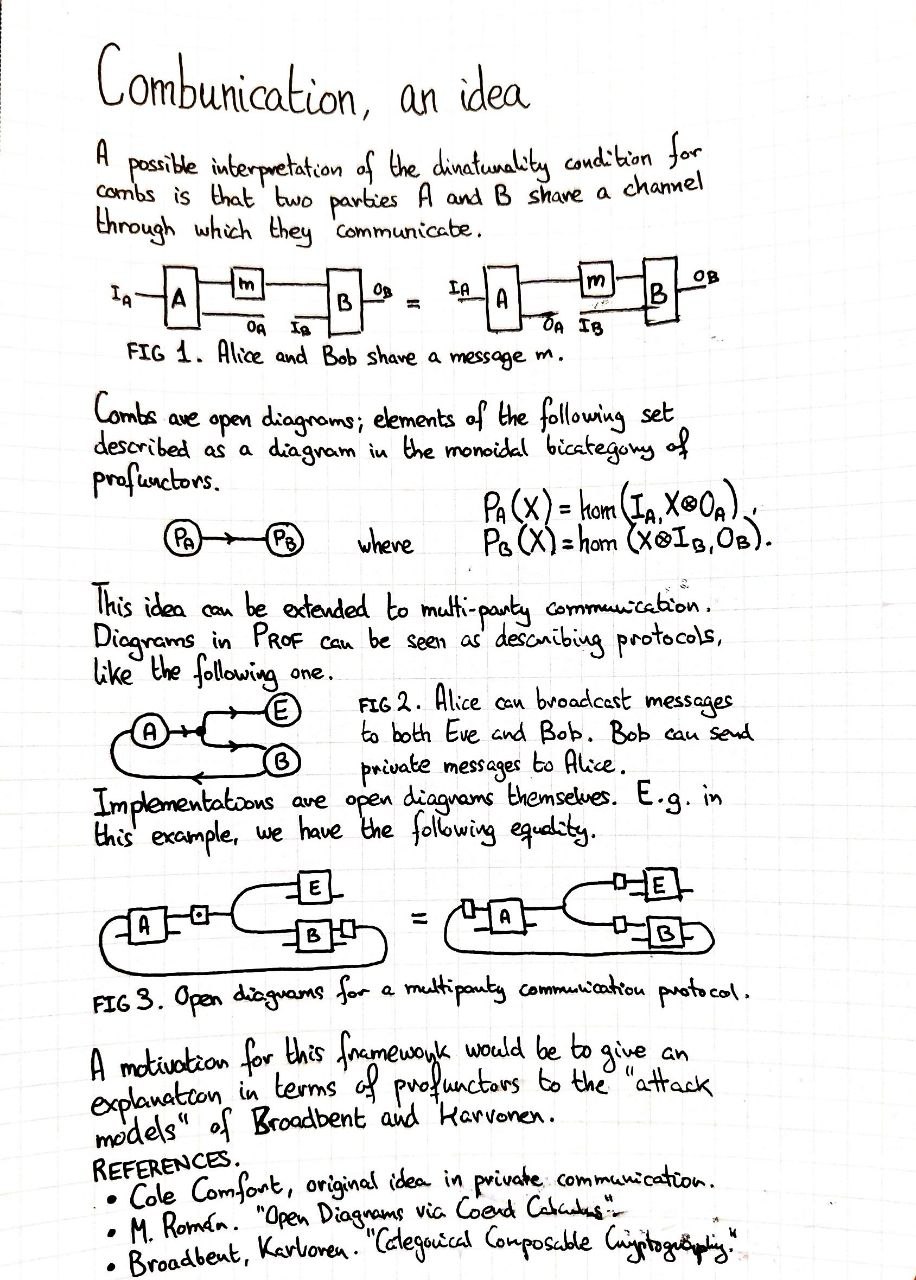 Combunication, an idea
A possible interpretation of the dinaturality condition for
combs is that two parties A and B share a channel
through which they communicate.
I_A A m O_A I_B B O_B = I_A A O_A I_B m B O_B
FIG 1. Alice and Bob share a message m.
Combs are open diagrams; elements of the following set
described as a diagram in the monoidal bicategory of
profunctors.
P_A(X) = hom(I_A, X⊗O_A);
P_A P_B where P_B(X) = hom(X⊗I_B, O_B).
This idea can be extended to multi-party communication.
Diagrams in PROF can be seen as describing protocols,
like the following one.
A E B
FIG 2. Alice can broadcast messages
to both Eve and Bob. Bob can send
private messages to Alice.
Implementations are open diagrams themselves. E.g. in
this example, we have the following equality.
A E B = A E B
FIG 3. Open diagrams for a multiparty communication protocol.
A motivation for this framework would be to give an
explanation in terms of profunctors to the "attack
models" of Broadbent and Karvonen.
REFERENCES.
• Cole Comfort, original idea in private communication.
• M. Román. "Open Diagrams via Coend Calculus"
• Broadbent, Karvonen. "Categorical Composable Cryptography."